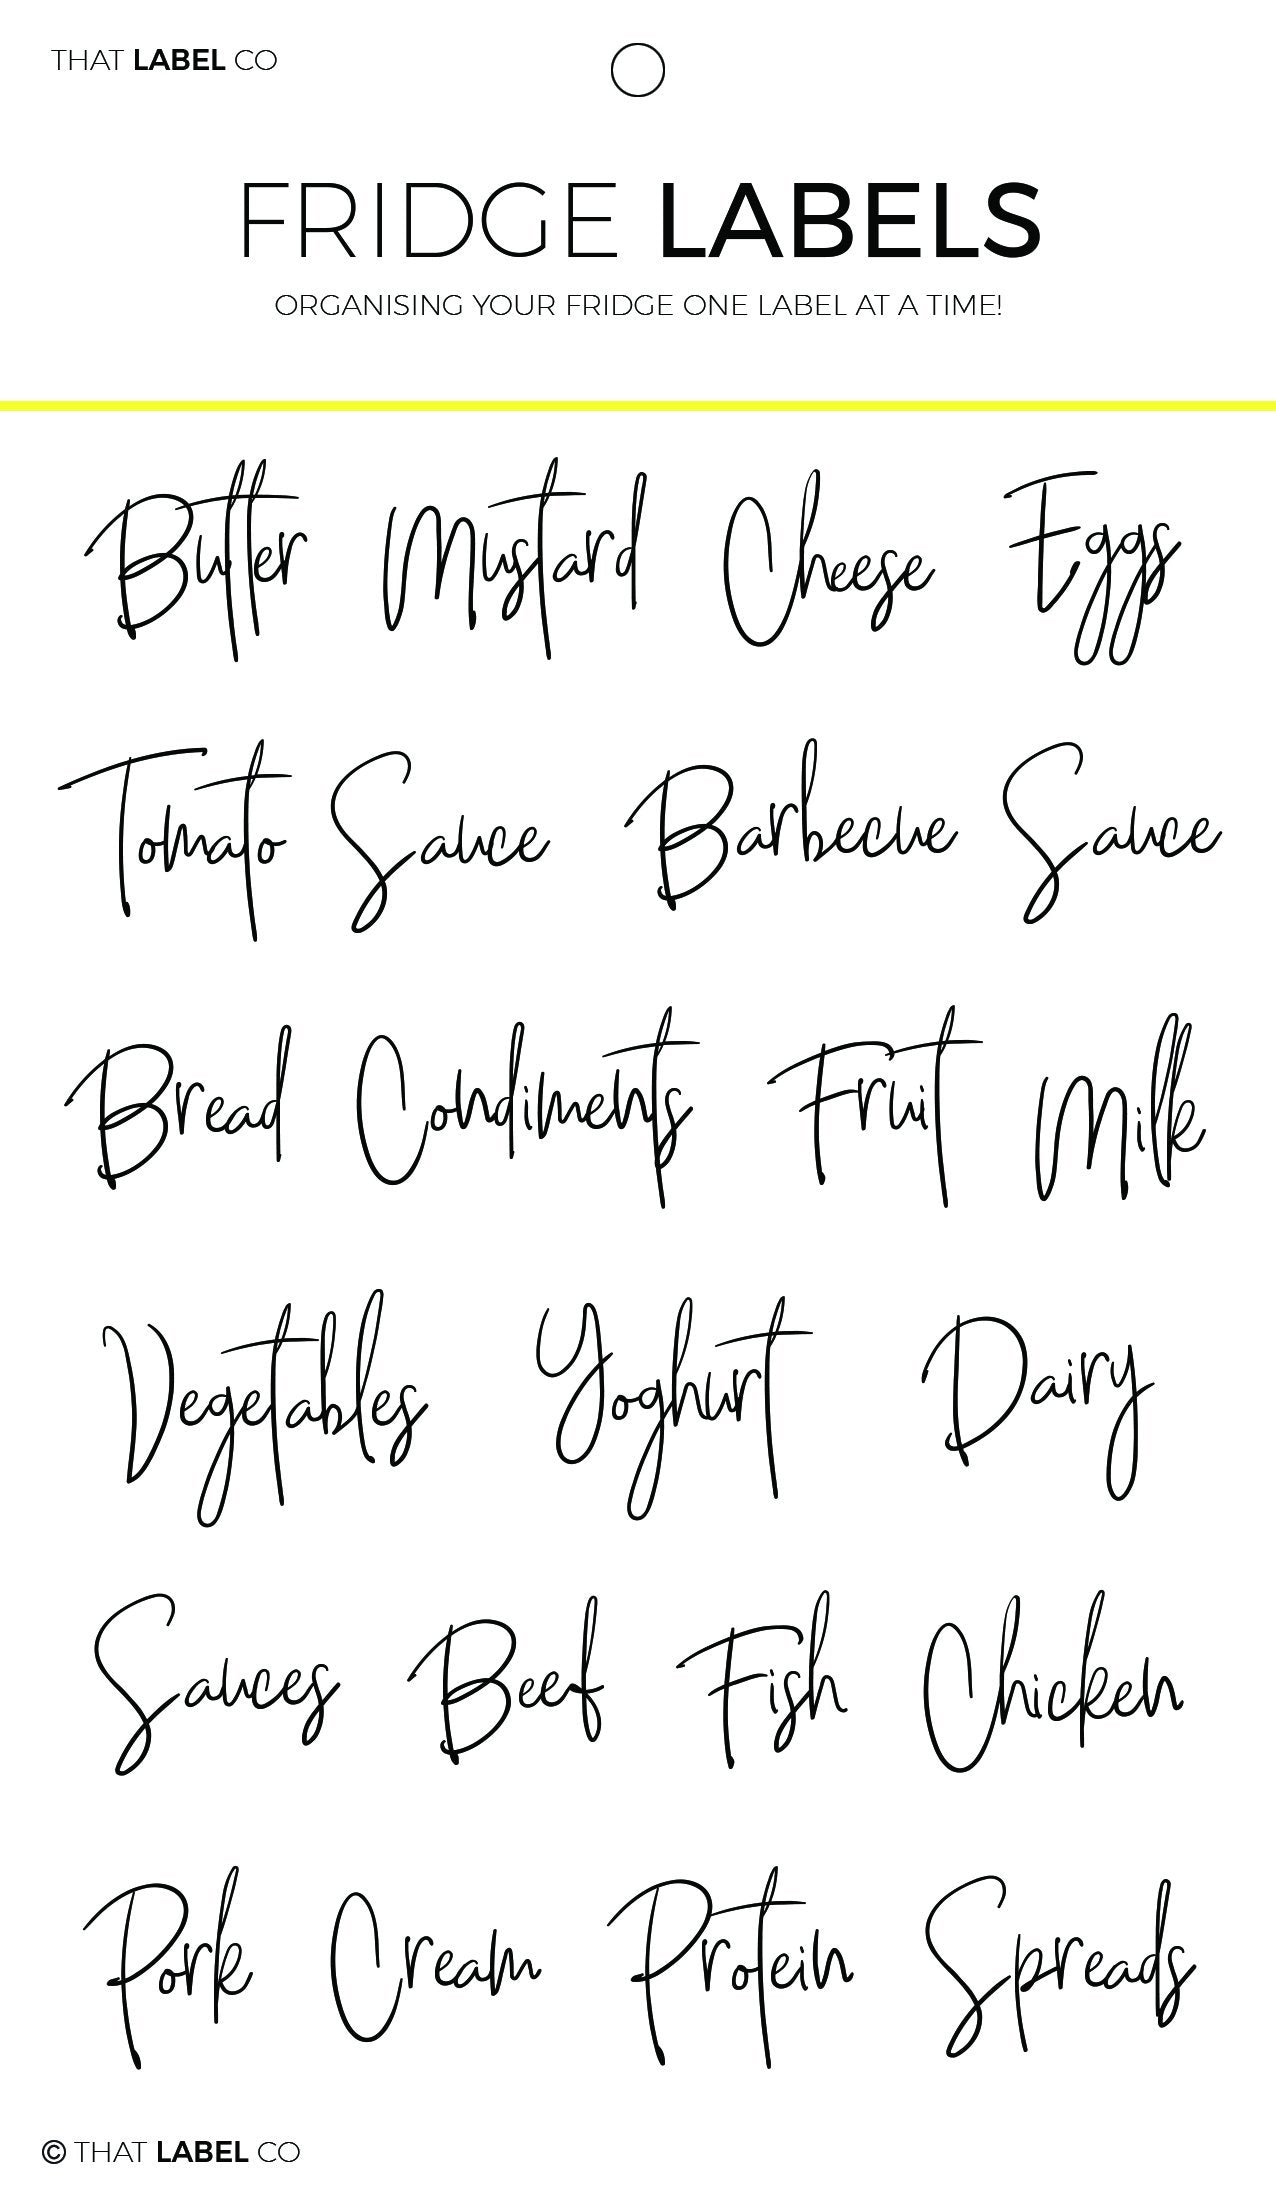 THAT LABEL CO
FRIDGE LABELS
ORGANISING YOUR FRIDGE ONE LABEL AT A TIME!
Butter Mustard Cheese Eggs
Tomato Sauce Barbecue Sauce
Bread Condiments Fruit Milk
Vegetables Yoghurt Dairy
Sauces Beef Fish Chicken
Pork Cream Protein Spreads
© THAT LABEL CO